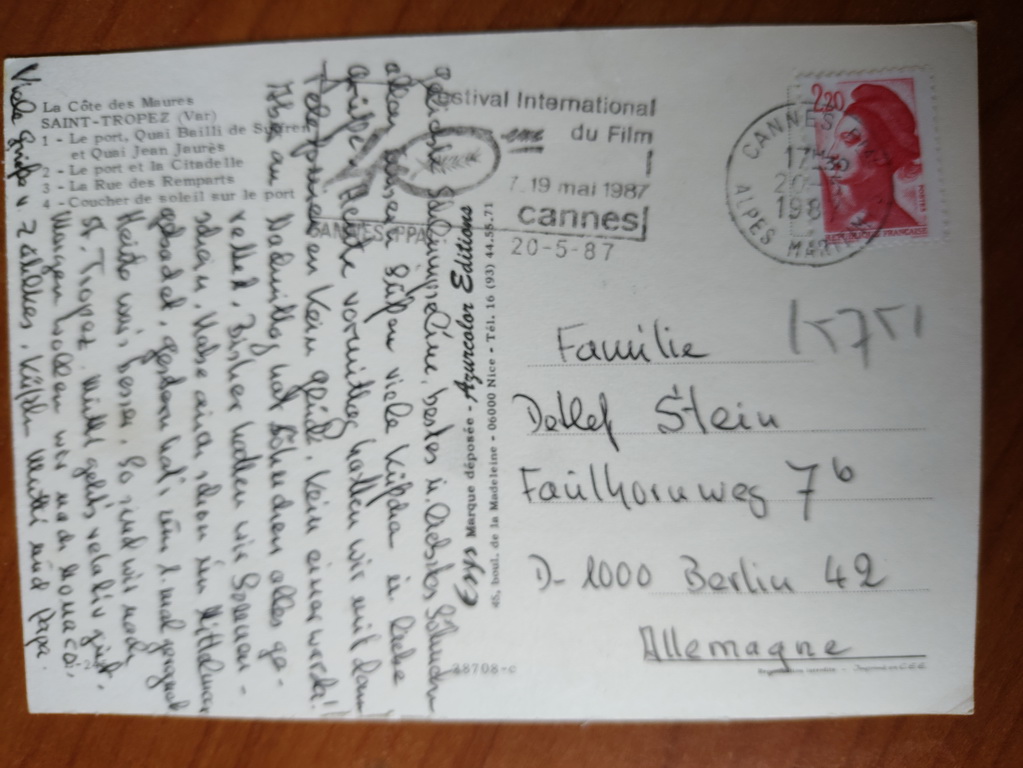 La Côte des Maures
SAINT-TROPEZ (Var)
1 - Le port, Quai Bailli de Suffren
et Quai Jean Jaurès
2 - Le port et la Citadelle
3 - La Rue des Remparts
4 - Coucher de soleil sur le port
Festival International
du Film
7.19 mai 1987
cannes
CANNES PPAL
20-5-87
CANNES
17H
20-5
198
ALPES MAR
2,20
REPUBLIQUE FRANÇAISE
bestes u.
allen lieben Süßen viele Küßchen u. liebe
Grüße. Heute vormittag hatten wir mit dem
Telefonieren kein Glück. Kein einer war da!!
Aber am Nachmittag hat Söhnchen alles ge-
rettet. Bisher hatten wir Sonnen-
schein. Habe auch schon im Mittelmeer
gebadet, gestern hat's zum 1. mal geregnet
Heute war's besser. So sind wir nach
St. Tropez. Mutti geht's relativ gut.
Morgen wollen wir nach Monaco.
Viele Grüße u. Mutti und Papa.
Marque déposée - Azurcolor Editions
45, boul. de la Madeleine - 06000 Nice - Tél. 16 (93) 44.55.71
Familie
15751
Detlef Stein
Faulhornweg 7b
D-1000 Berlin 42
Allemagne
38708-c
Reproduction interdite - Imprimé en C.E.E.